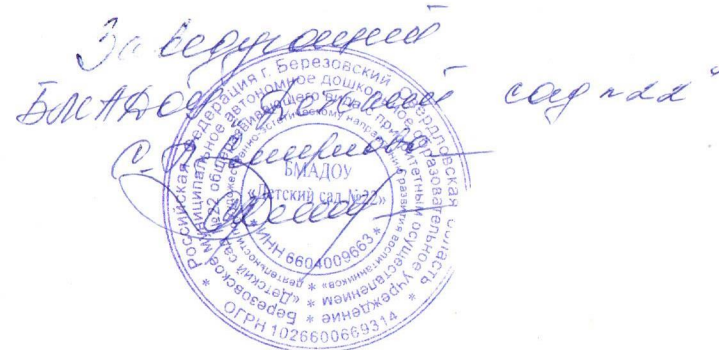 Заведующий
БМАДОУ "Детский сад №22"
С.А. Смирнова
* Российская Федерация г. Березовский Свердловская область *
ОГРН 1026600669314
Березовское муниципальное автономное дошкольное образовательное учреждение *
«Детский сад №22 общеразвивающего вида с приоритетным осуществлением *
деятельности художественно-эстетическому направлению развития воспитанников» *
БМАДОУ
«Детский сад №22»
* ИНН 6604009663 *